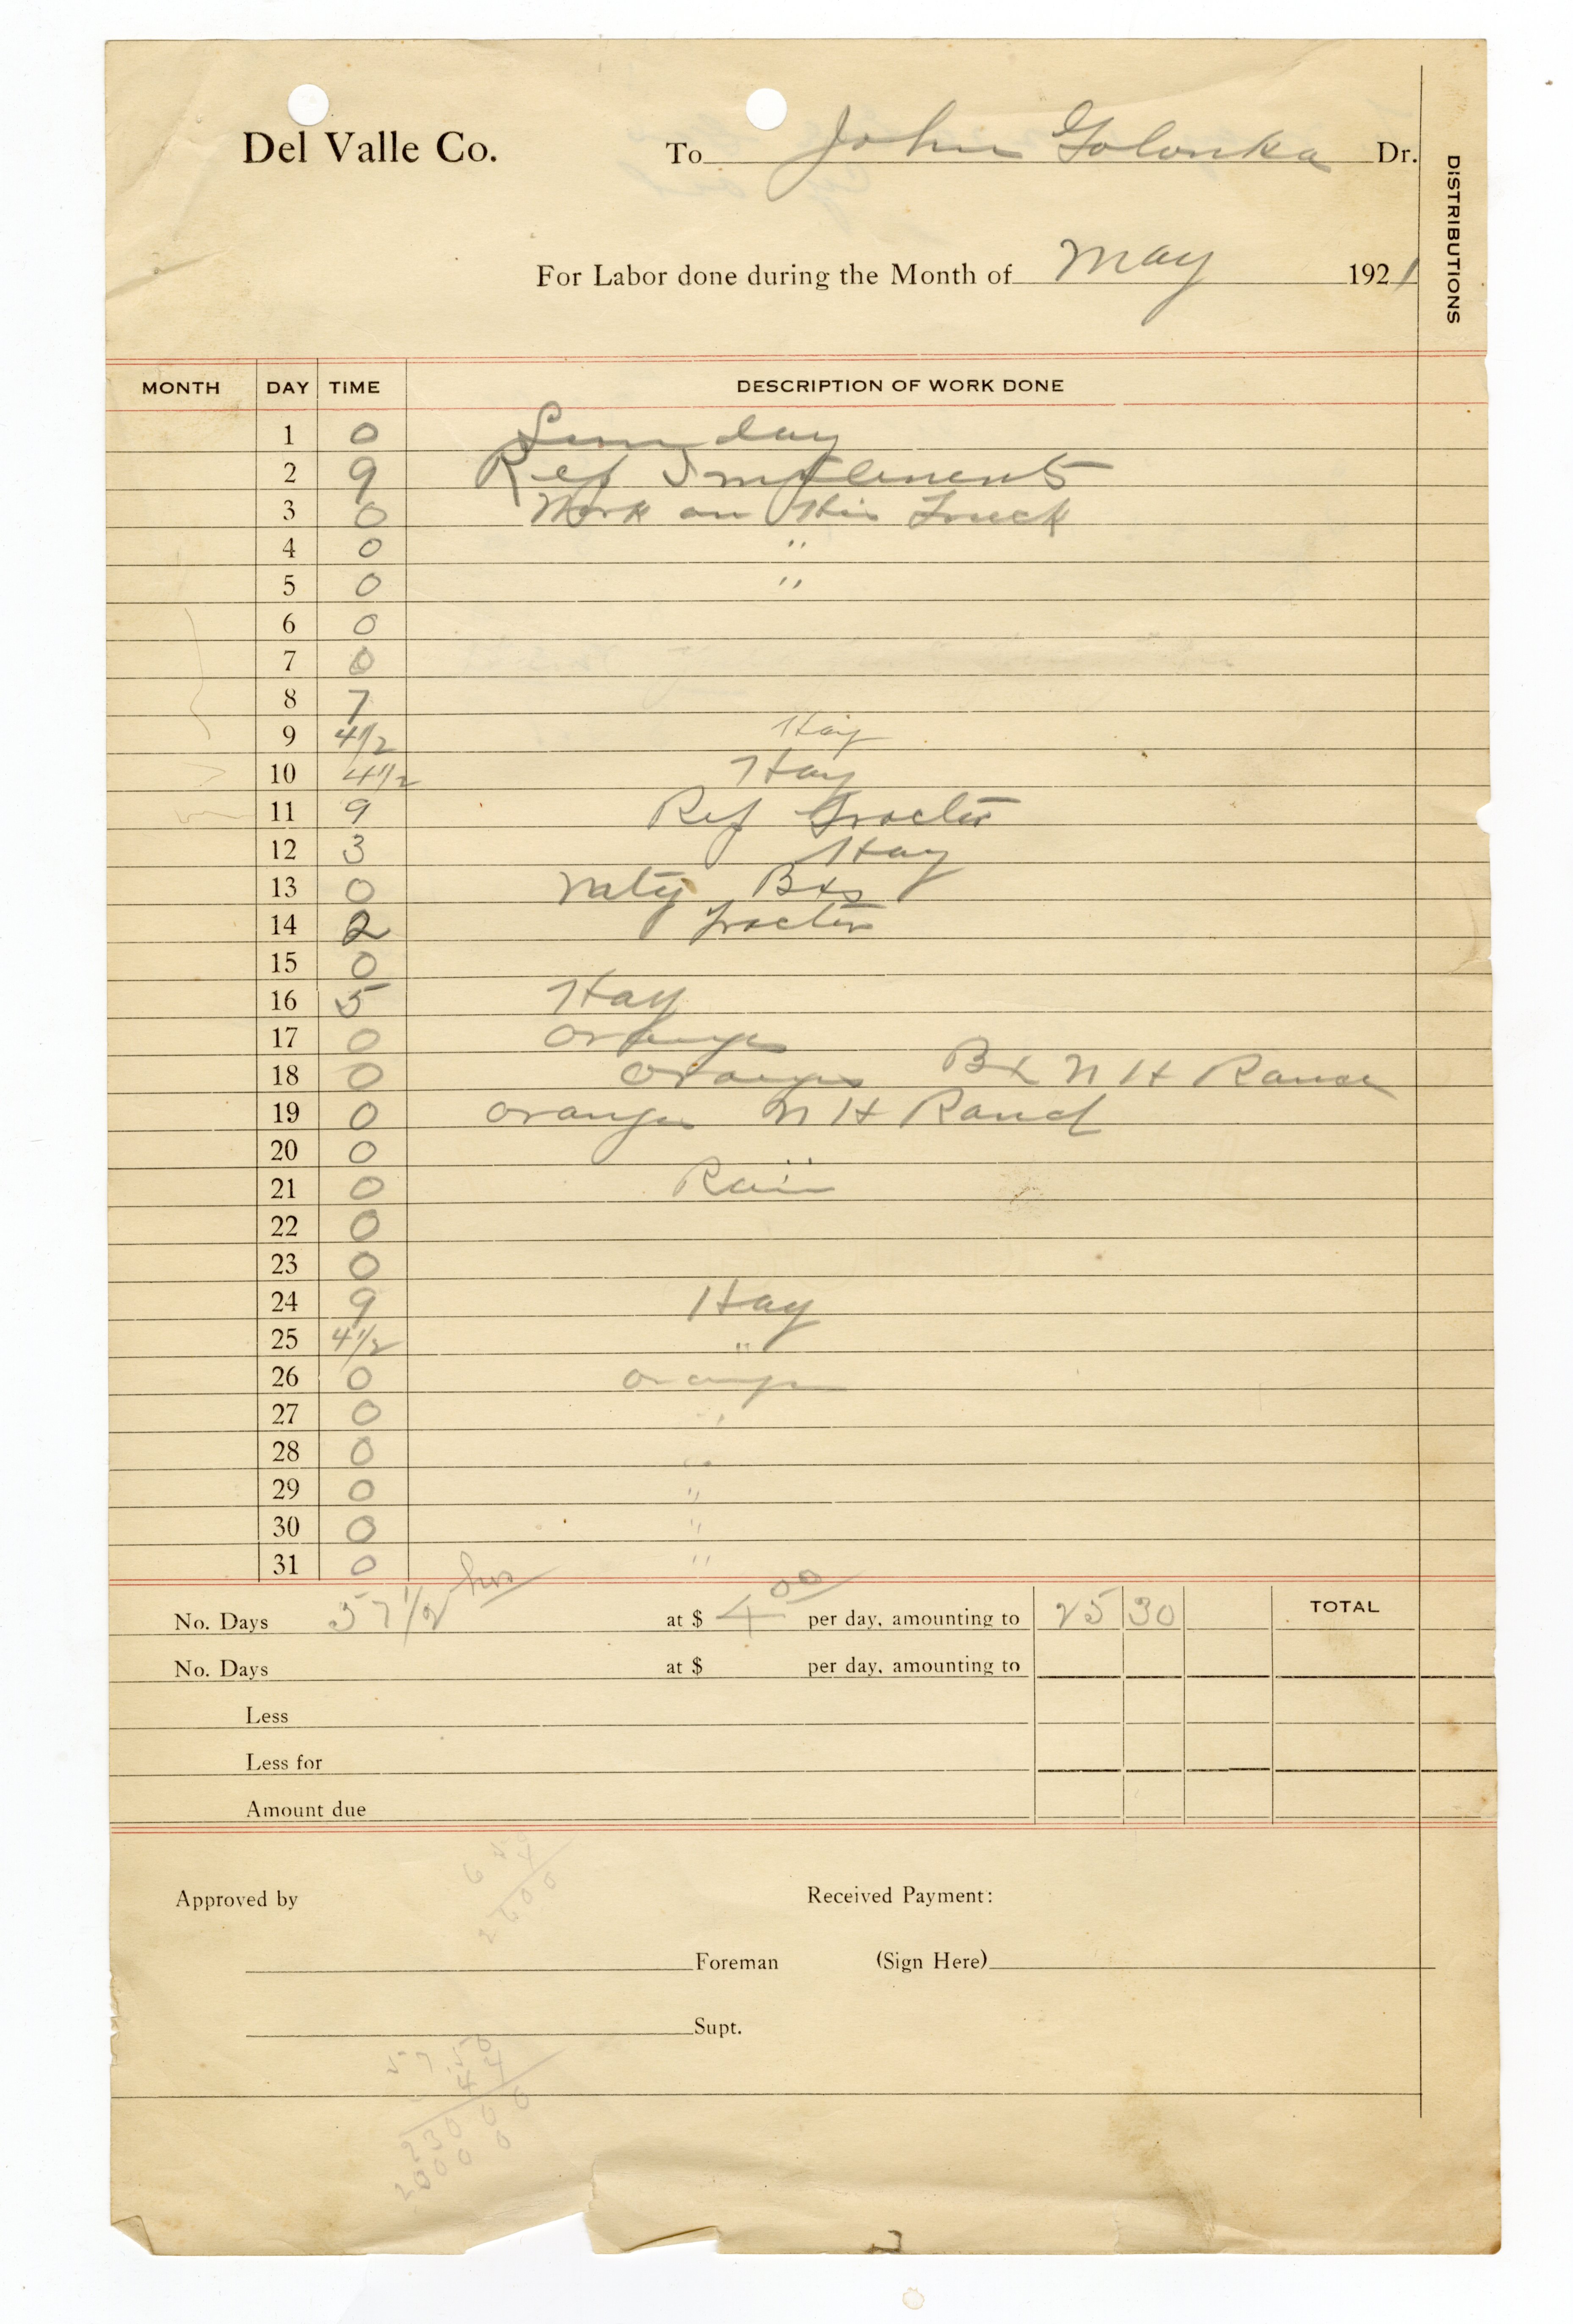 Del Valle Co. To John Golonka Dr.
DISTRIBUTIONS
For Labor done during the Month of May 1921
MONTH DAY TIME DESCRIPTION OF WORK DONE
1 0 Sunday
2 9 Rep Implements
3 0 Work on His Truck
4 0 "
5 0 "
6 0
7 0
8 7
9 4 1/2 Hay
10 4 1/2 Hay
11 9 Rep Tractor
12 3 Hay
13 0 Bxs
14 2 Tractor
15 0
16 5 Hay
17 0 Oranges
18 0 Oranges Bx N H Ranch
19 0 Oranges N H Ranch
20 0 "
21 0 Rain
22 0
23 0
24 9 Hay
25 4 1/2 "
26 0 Oranges
27 0 "
28 0 "
29 0 "
30 0 "
31 0 "
No. Days 57 1/2 hrs at $ 4 00 per day, amounting to 25 30 TOTAL
No. Days at $ per day, amounting to
Less
Less for
Amount due
Approved by Received Payment:
Foreman (Sign Here)
Supt.
57 50
44